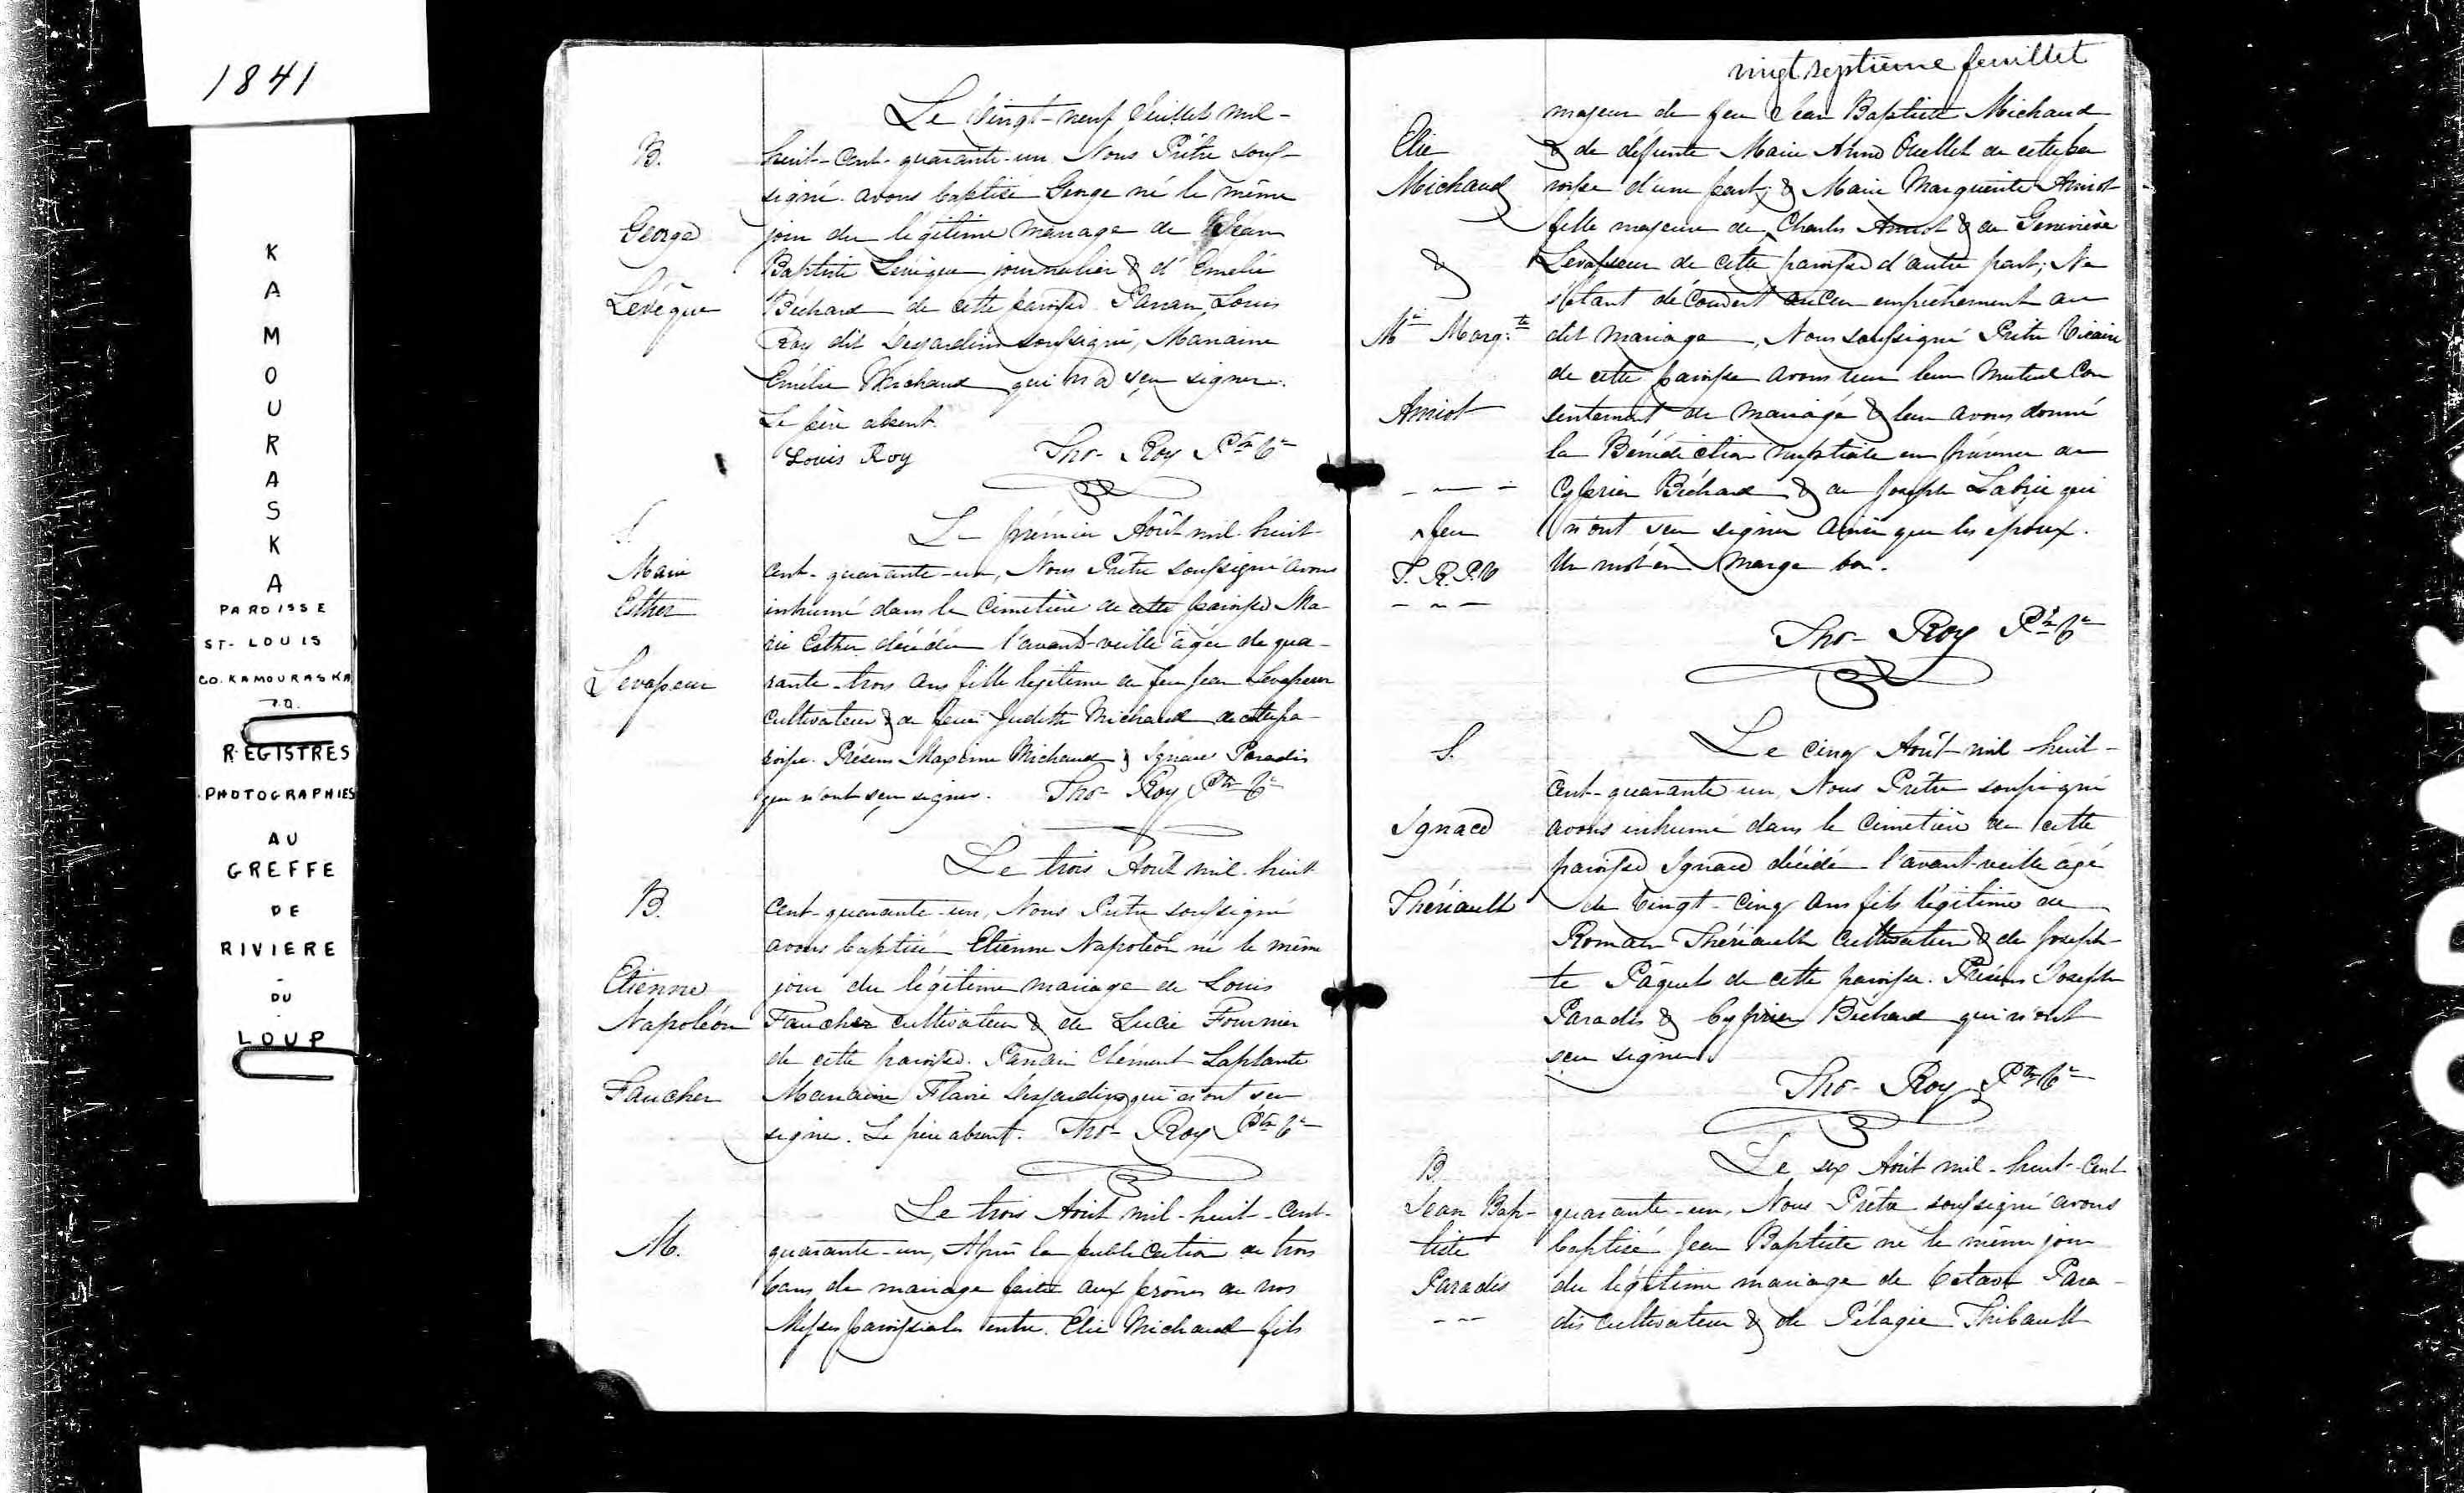 1841
KAMOURASKA
PAROISSE
ST-LOUIS
CO. KAMOURASKA
P.Q.
REGISTRES
PHOTOGRAPHIES
AU
GREFFE
DE
RIVIERE
-
DU
LOUP
B.
George
Levêque
Le Vingt-neuf Juillet mil-
huit-Cent-quarante-un Nous Prêtre sous-
signé avons baptisé George né le même
jour du légitime mariage de Jean
Baptiste Levêque journalier & d'Emelie
Béchard de cette paroisse Parrain Louis
Roy dit Desjardins soussigné, Marraine
Emélie Michaud qui n'a sçu signer.
Le père absent.
Louis Roy Tho- Roy Ptre Vre
S.
Marie
Esther
Levasseur
Le premier Août mil-huit-
cent-quarante-un, Nous Prêtre soussigné avons
inhumé dans le Cimetière de cette paroisse Ma-
rie Esther décédée l'avant-veille âgée de qua-
rante-trois ans fille légitime de feu Jean Levasseur
Cultivateur & de feue Judith Michaud de cette pa-
roisse. Présens Maxime Michaud & Ignace Paradis
qui n'ont sçu signer. Tho- Roy Ptre Vre
B.
Etienne
Napoléon
Faucher
Le trois Août mil-huit
Cent-quarante-un, Nous Prêtre soussigné
avons baptisé Etienne Napoléon né le même
jour du légitime mariage de Louis
Faucher cultivateur & de Lucie Fournier
de cette paroisse. Parrain Clément Laplante
Marraine Flavie Desjardins qui n'ont su
signer. Le père absent. Tho- Roy Ptre Vre
M.
Le trois Août mil-huit-Cent-
quarante-un, Après la publication de trois
bans de mariage faite aux prônes de nos
Messes paroissiales entre Elie Michaud fils
vingt septième feuillet
Elie
Michaud
&
Mie Marg.te
Amiot
- - -
feu
T. R. P. V
- - -
majeur de feu Jean Baptiste Michaud
& de défunte Marie Anne Ouellet de cette pa
roisse d'une part; & Marie Marguerite Amiot
fille majeure de Charles Amiot & de Geneviève
Levasseur de cette paroisse d'autre part; Ne
s'étant découvert aucun empêchement au
dit mariage, Nous soussigné Prêtre Vicaire
de cette paroisse avons reçu leur mutuel Con
sentement de mariage & leur avons donné
la Bénédiction nuptiale en présence de
Cyprien Béchard & de Joseph Labrie qui
n'ont sçu signer ainsi que les époux.
Un mot en marge bon.
Tho- Roy Ptre Vre
S.
Ignace
Thériault
Le cinq Août mil-huit-
Cent-quarante-un, Nous Prêtre soussigné
avons inhumé dans le Cimetière de cette
paroisse Ignace décédé l'avant-veille âgé
de Vingt-cinq ans fils légitime de
Romain Thériault Cultivateur & de Joseph-
te Pâquet de cette paroisse. Présens Joseph
Paradis & Cyprien Béchard qui n'ont
sçu signer.
Tho- Roy Ptre Vre
B.
Jean Bap-
tiste
Paradis
- -
Le six Août mil-huit-Cent
quarante-un, Nous Prêtre soussigné avons
baptisé Jean Baptiste né le même jour
du légitime mariage de Octave Para-
dis cultivateur & de Pélagie Thibault